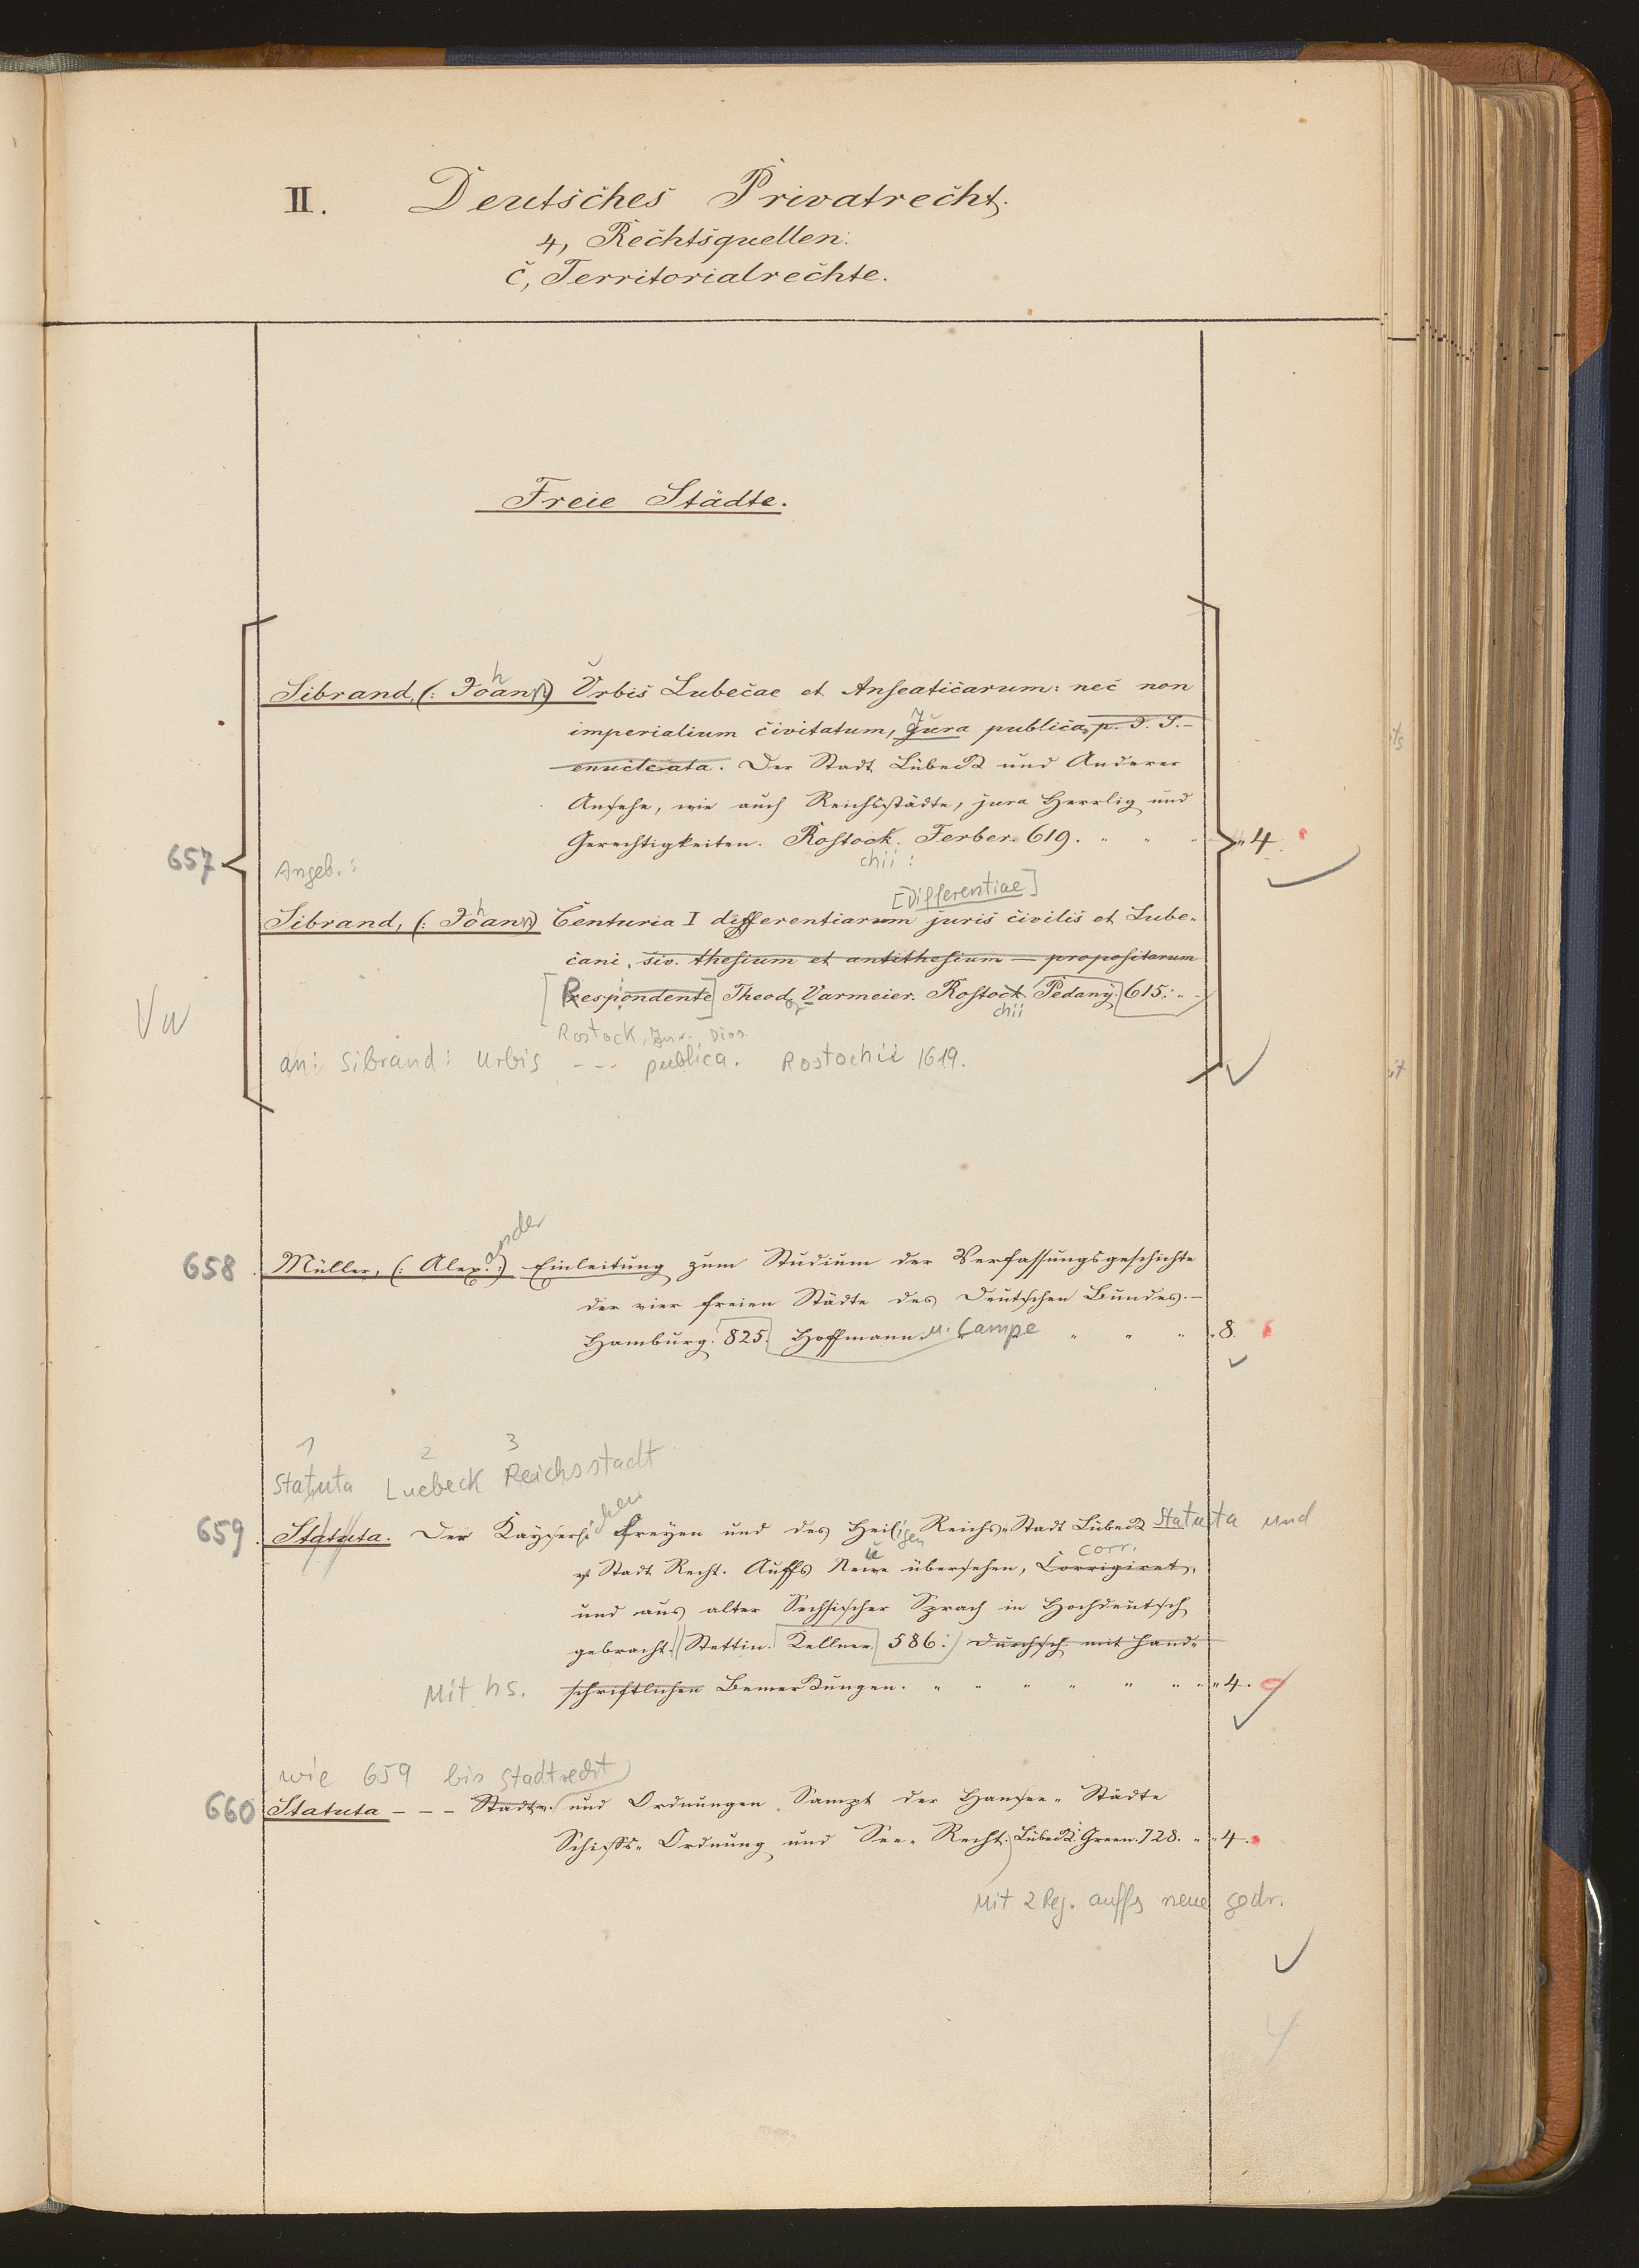 II. Deutsches Privatrecht.
4, Rechtsquellen.
c, Territorialrechte.
Freie Städte.
Sibrand, (: Joh an :) Urbis Lubecae et Anseaticarum: nec non
imperialium civitatum, Jura publica, p. J. S. –
enucleata. Der Stadt Lübeck und Anderer
Ansehe, wie auch Reichsstädte, jura Herrlig und
657 Gerechtigkeiten. Rostock. Ferber. 619. " " " 4.
Angeb.: chii :
[Differentiae]
Sibrand, (: Joh an :) Centuria I differentiarum juris civilis et Lube-
cani, siv. thesium et antithesium — propositarum
[Respondente] Theod. Varmeier. Rostock. Pedany. 615. "
chii
Rostock, Jur. Diss.
an: Sibrand: Urbis --- publica. Rostochii 1619.
ander
658 Müller, (: Alex. :) Einleitung zum Studium der Verfassungsgeschichte
der vier freien Städte des Deutschen Bundes. –
Hamburg. 825. Hoffmann u. Campe " " " " 8.
1 2 3
Statuta Luebeck Reichsstadt
659. Statuta. Der Kayserlichen freyen und des Heiligen Reichs-Stadt Lübeck Statuta und
Stadt Recht. Auffs Newe übersehen, Corrigiret,
corr.
und aus alter Sechsischer Sprach in Hochdeutsch
gebracht. Stettin. Kellner. 586. Durchsch. mit hand-
Mit hs. schriftlichen Bemerkungen. " " " " " " " 4.
wie 659 bis Stadtrecht
660 Statuta - - - Stadtr. und Ordnungen. Sampt der Hansee- Städte
Schiffs- Ordnung und See- Recht. Lübeck. Green. 728. " " 4.
Mit 2 Reg. auffs neue gedr.